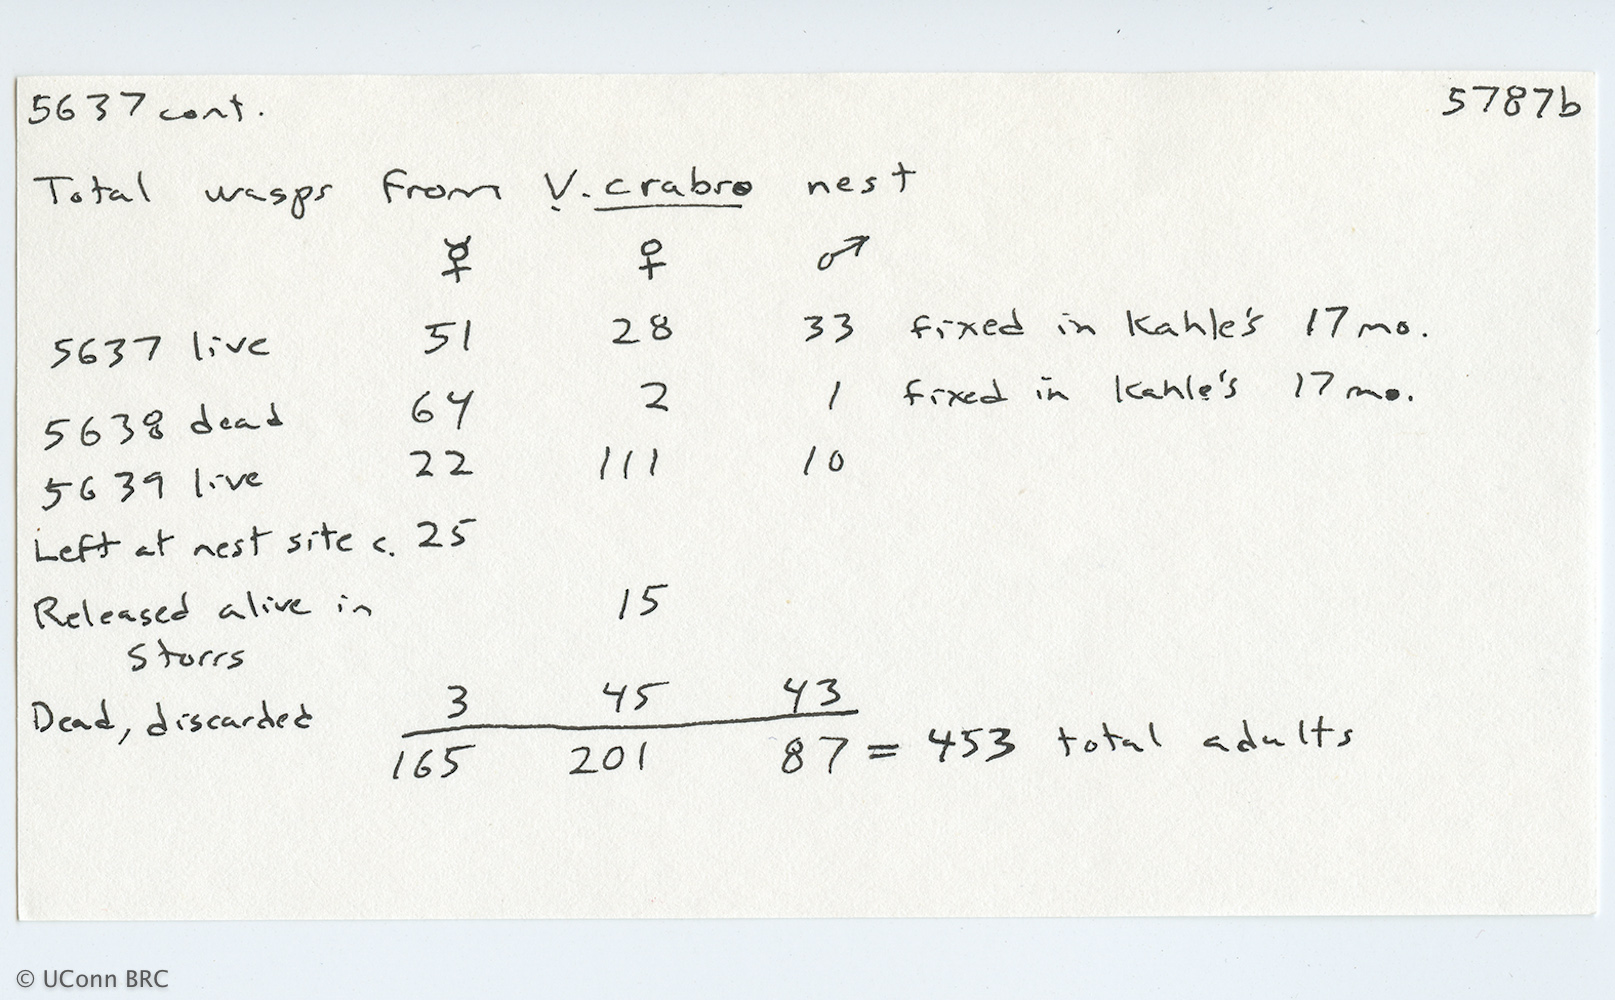 5637 cont. 5787b
Total wasps from V. crabro nest
☿ ♀ ♂
5637 live 51 28 33 fixed in Kahle's 17 mo.
5638 dead 64 2 1 fixed in Kahle's 17 mo.
5639 live 22 111 10
Left at nest site c. 25
Released alive in 15
Storrs
Dead, discarded 3 45 43
165 201 87 = 453 total adults
© UConn BRC